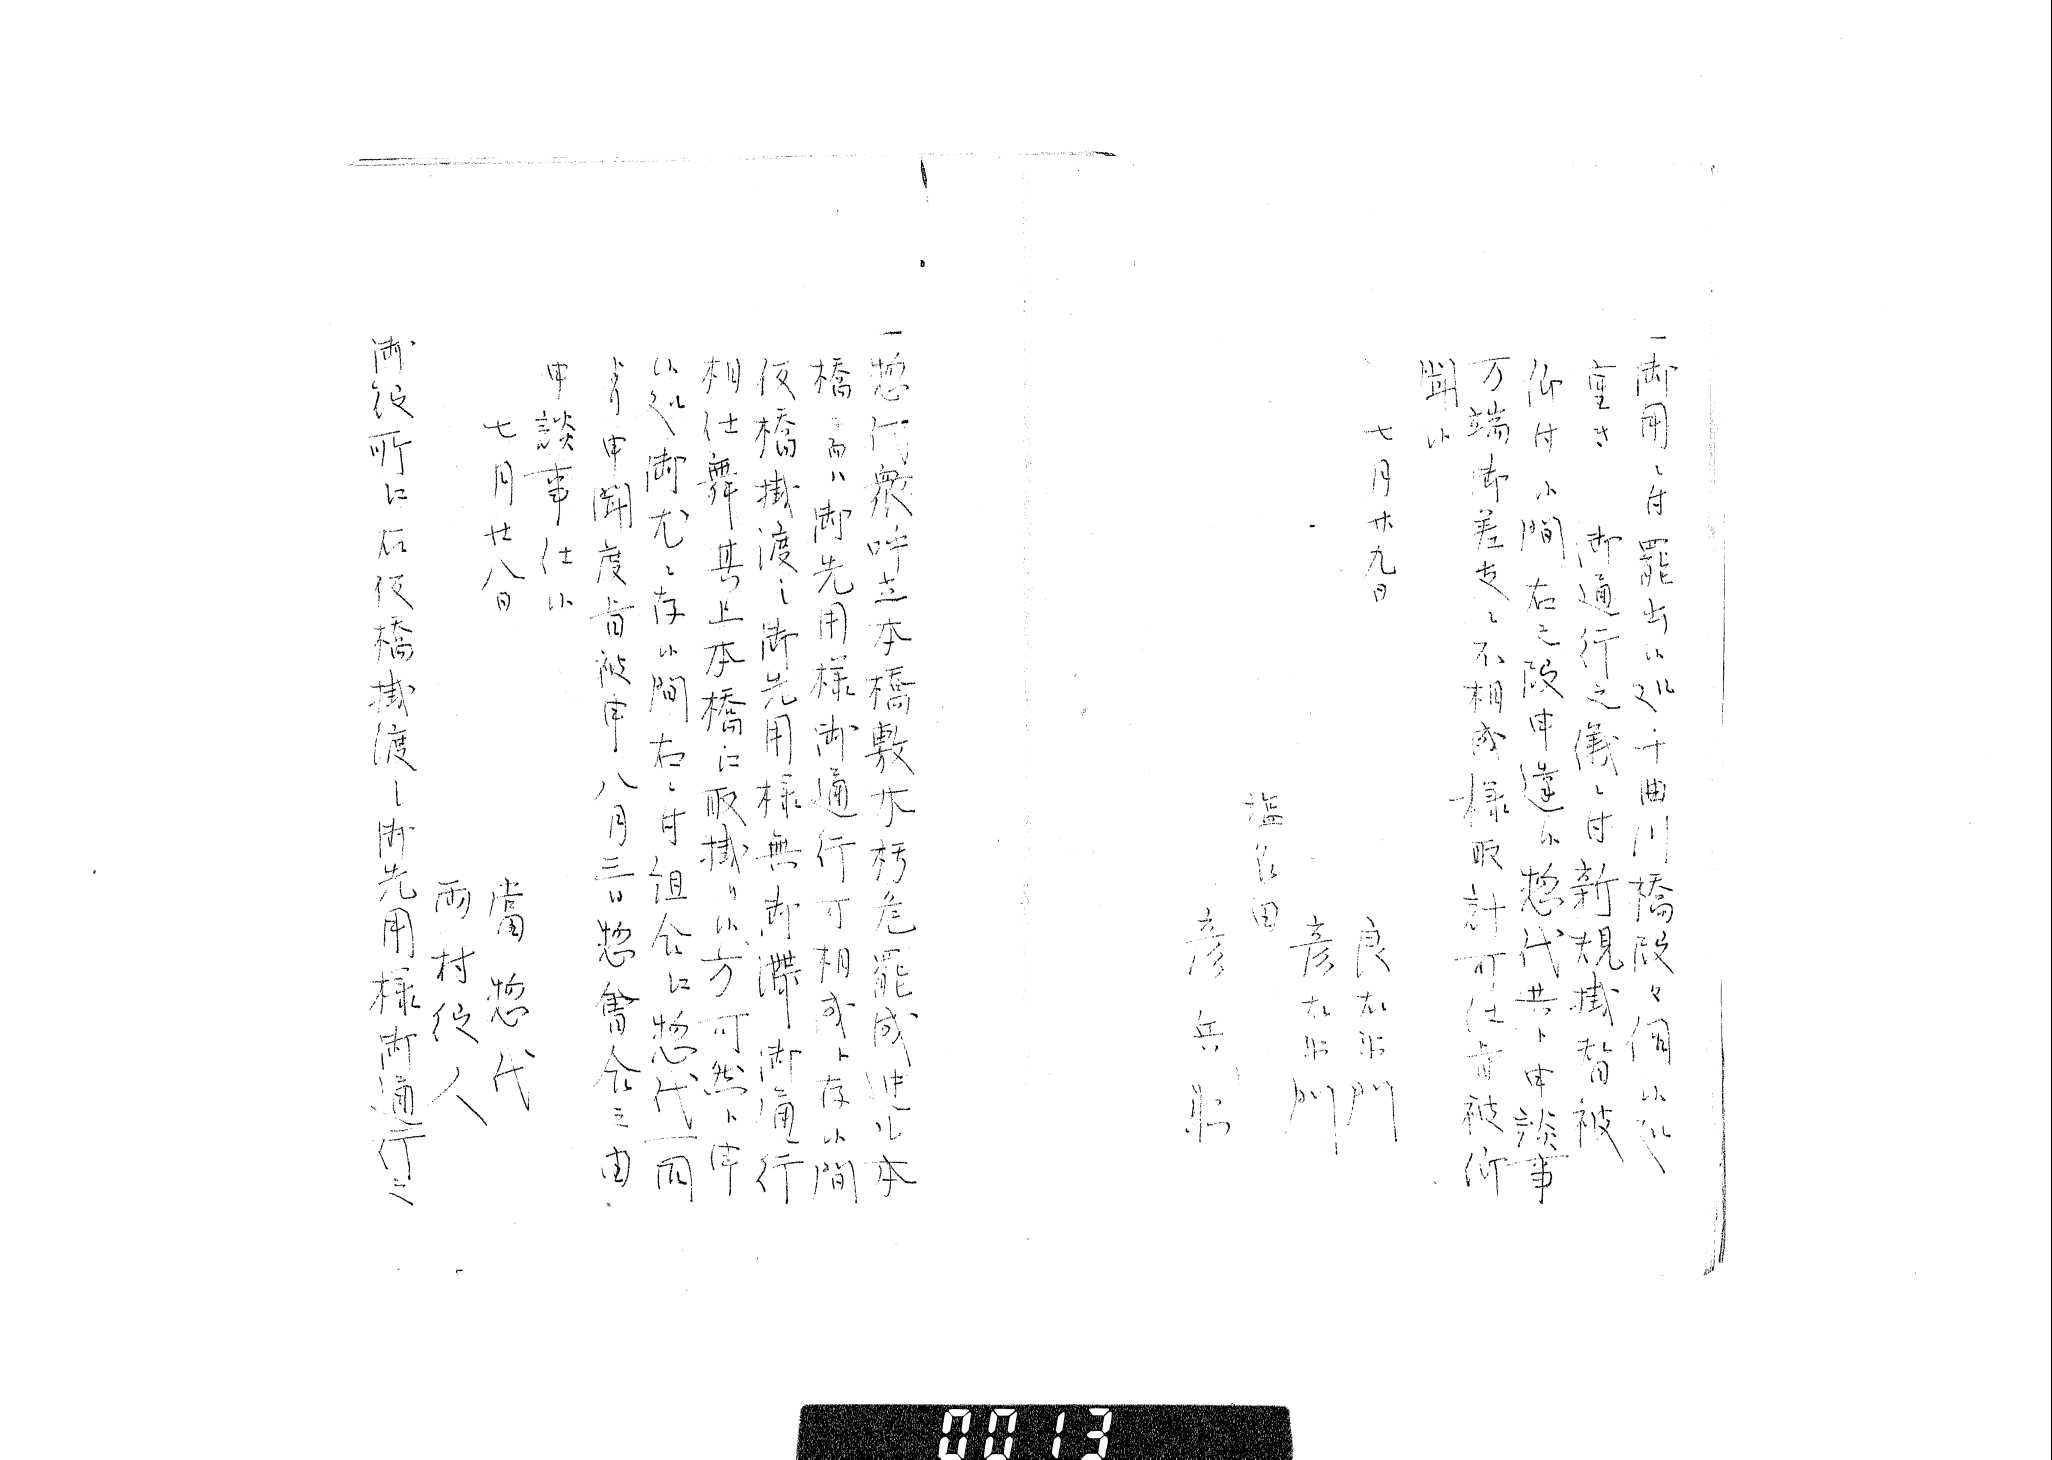 一御用ニ付罷出候処千曲川橋段々個候処
重き　御通行之儀ニ付新規掛替被
仰付候間右之段申達候惣代共ト申談事
万端御差支ニ不相成様取計可仕旨被仰
聞候
七月廿九日
良左衛門
彦左衛門
塩名田
彦兵衛
一惣代衆呼立本橋敷木朽危罷成迚も本
橋ニ而ハ御先用様御通行可相成ト存候間
仮橋掛渡シ御先用様無御滞御通行
相仕舞其上本橋江取掛リ候方可然ト申
候処御尤ニ存候間右ニ付組合江惣代両
人ゟ申聞度旨被申八月三日惣會合之由
申談事仕候
七月廿八日
當惣代
両村役人
御役所江右仮橋掛渡シ御先用様御通行之
0013